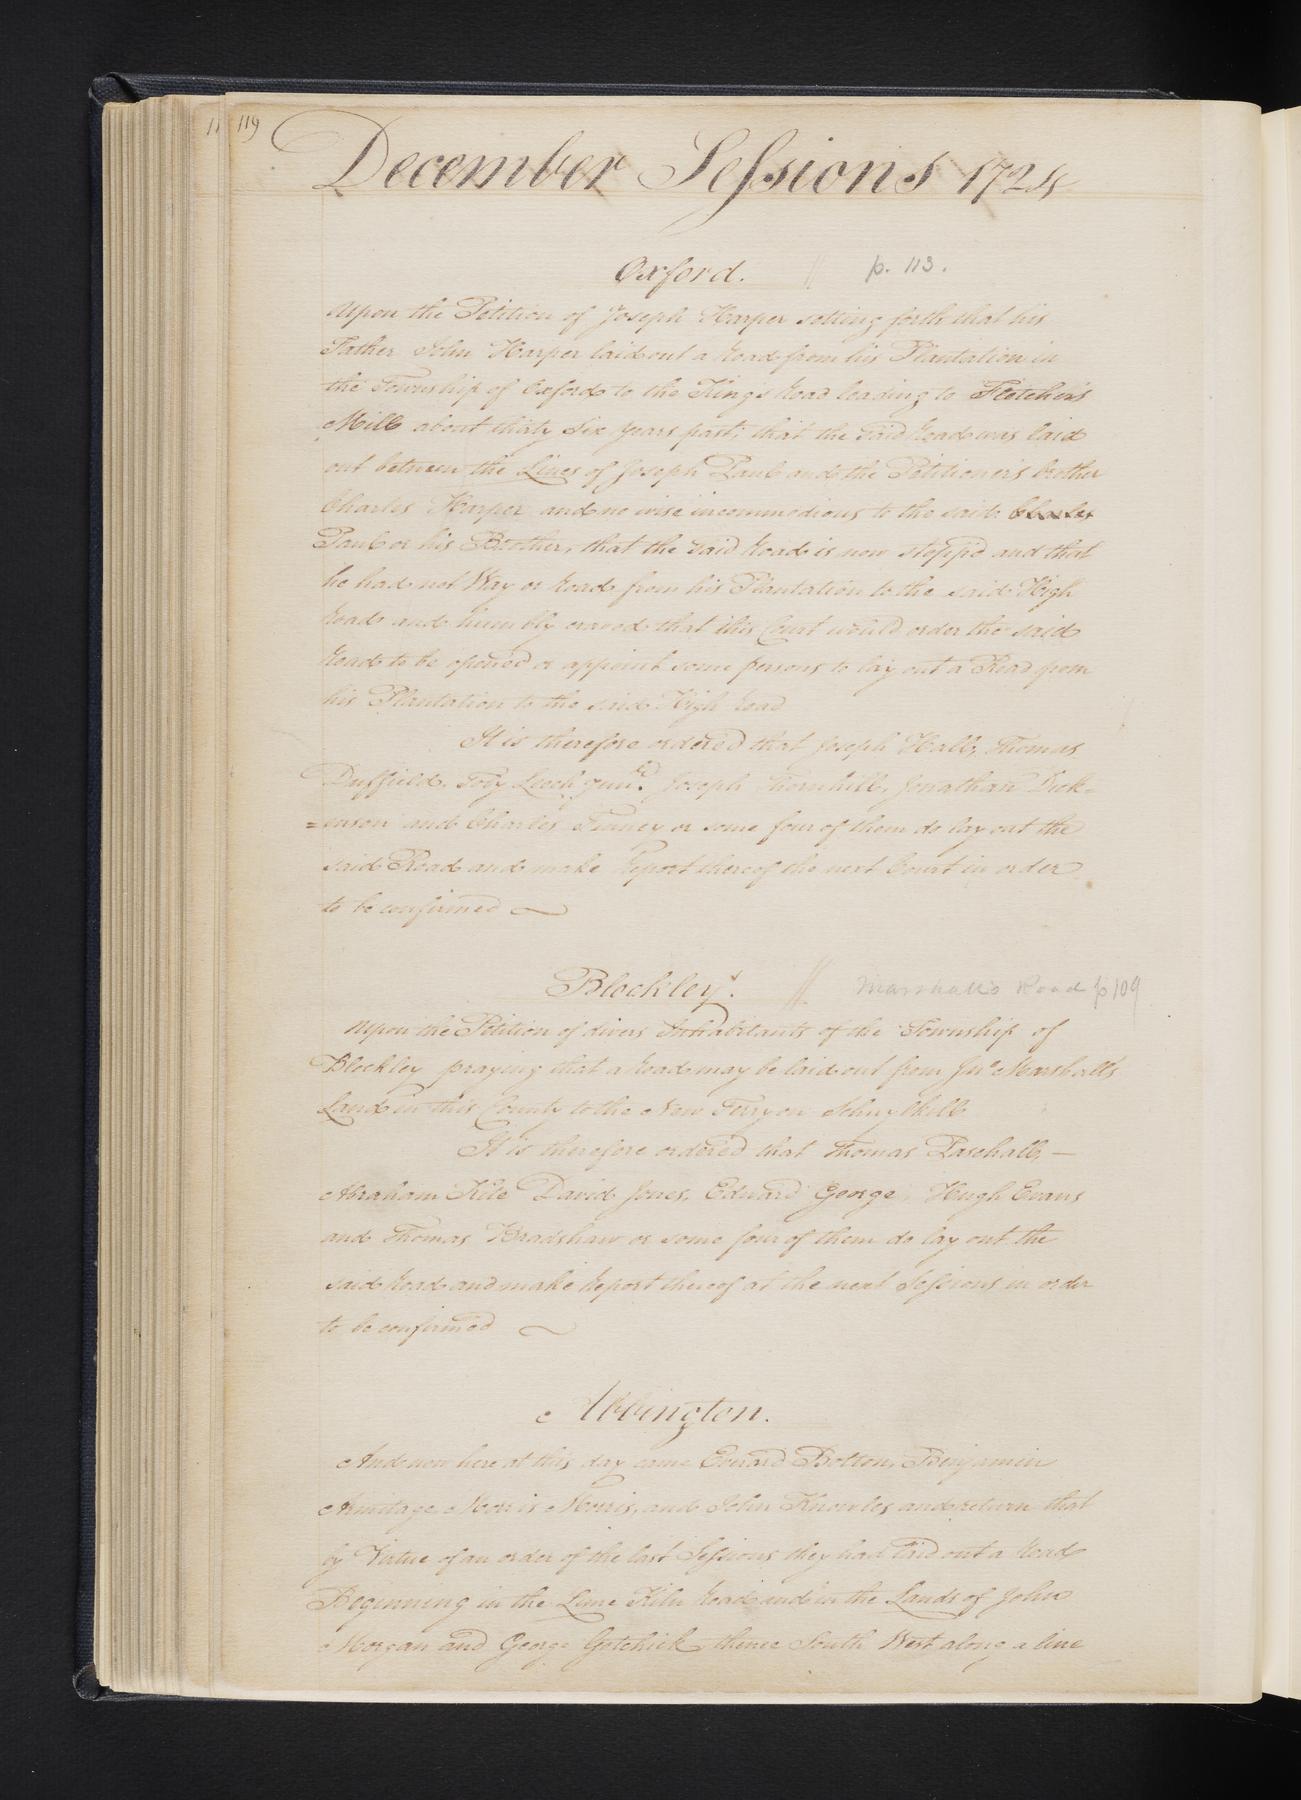 119
December Sessions 1724
Oxford. // p. 113.
Upon the Petition of Joseph Harper setting forth that his
Father John Harper laid out a Road from his Plantation in
the Township of Oxford to the King's Road leading to Fletcher's
Mill about thirty Six years past; that the said Road was laid
out between the Lines of Joseph Paul and the Petitioner's brother
Charles Harper and no wise incommodious to the said Charles
Paul or his Brother, that the said Road is now stopp'd and that
he had not Way or Road from his Plantation to the said High
Road and humbly craved that this Court would order the said
Road to be opened or appoint some persons to lay out a Road from
his Plantation to the said High Road
It is therefore ordered that Joseph Hall, Thomas
Duffield, Toby Leech Junr. Joseph Thornhill, Jonathan Dick=
=enson and Charles Finney or some four of them do lay out the
said Road and make Report thereof the next Court in order
to be confirmed
Blockley. // Marshall's Road p 109
Upon the Petition of divers Inhabitants of the Township of
Blockley praying that a Road may be laid out from Jno. Marshall's
Land in this County to the New Ferry on Schuylkill
It is therefore ordered that Thomas Paschall, —
Abraham Kite David Jones, Edward George, Hugh Evans
and Thomas Bradshaw or some four of them do lay out the
said Road and make Report thereof at the next Sessions in order
to be confirmed
Abbington.
And now here at this day came Everard Bolton, Benjamin
Armitage Morris Morris, and John Knowles and return that
by Virtue of an order of the last Sessions they had laid out a Road
Beginning in the Lime Kiln Road and in the Lands of John
Morgan and George Gotchick thence South West along a line